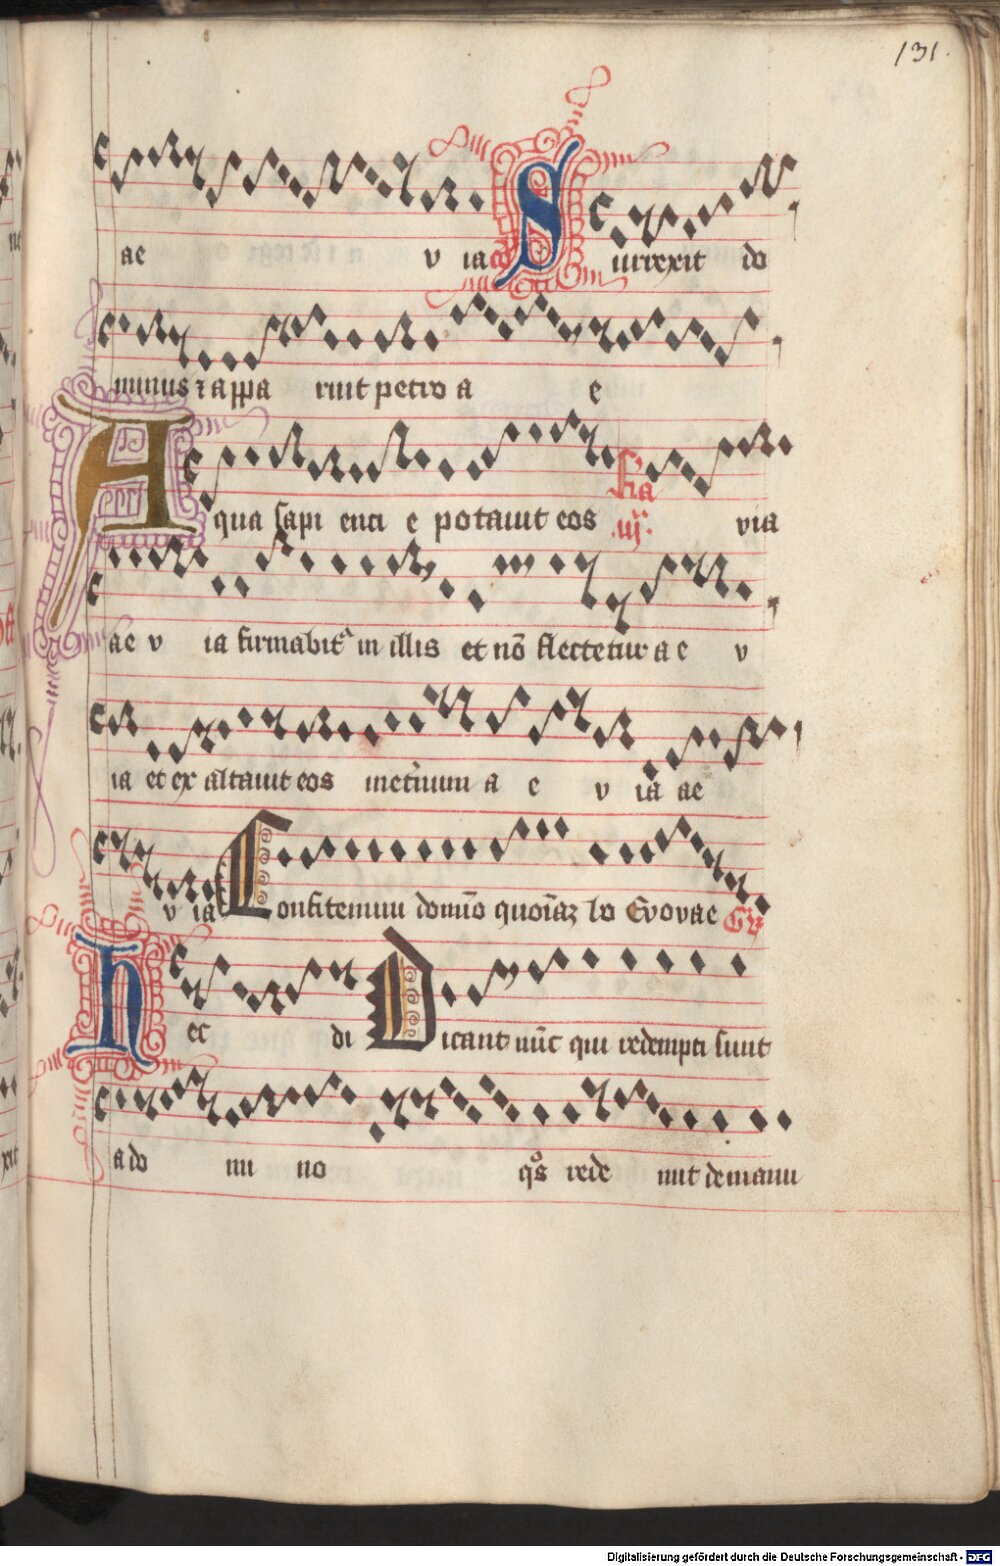 131.
ae v ia co Surrexit do
minus ⁊ appa ruit petro a e
Aqua sapi enci e potauit eos fia iij. via
ae v ia firmabit in illis et nō flectetur a e v
ia et ex altauit eos inet'num a e v ia ae
v ia Confitemini domīo quoīaz bo Evovae Gr
Hec di Dicant nūc qui redempti sunt
a do mi no qͦs rede mit de manu
Digitalisierung gefördert durch die Deutsche Forschungsgemeinschaft - DFG